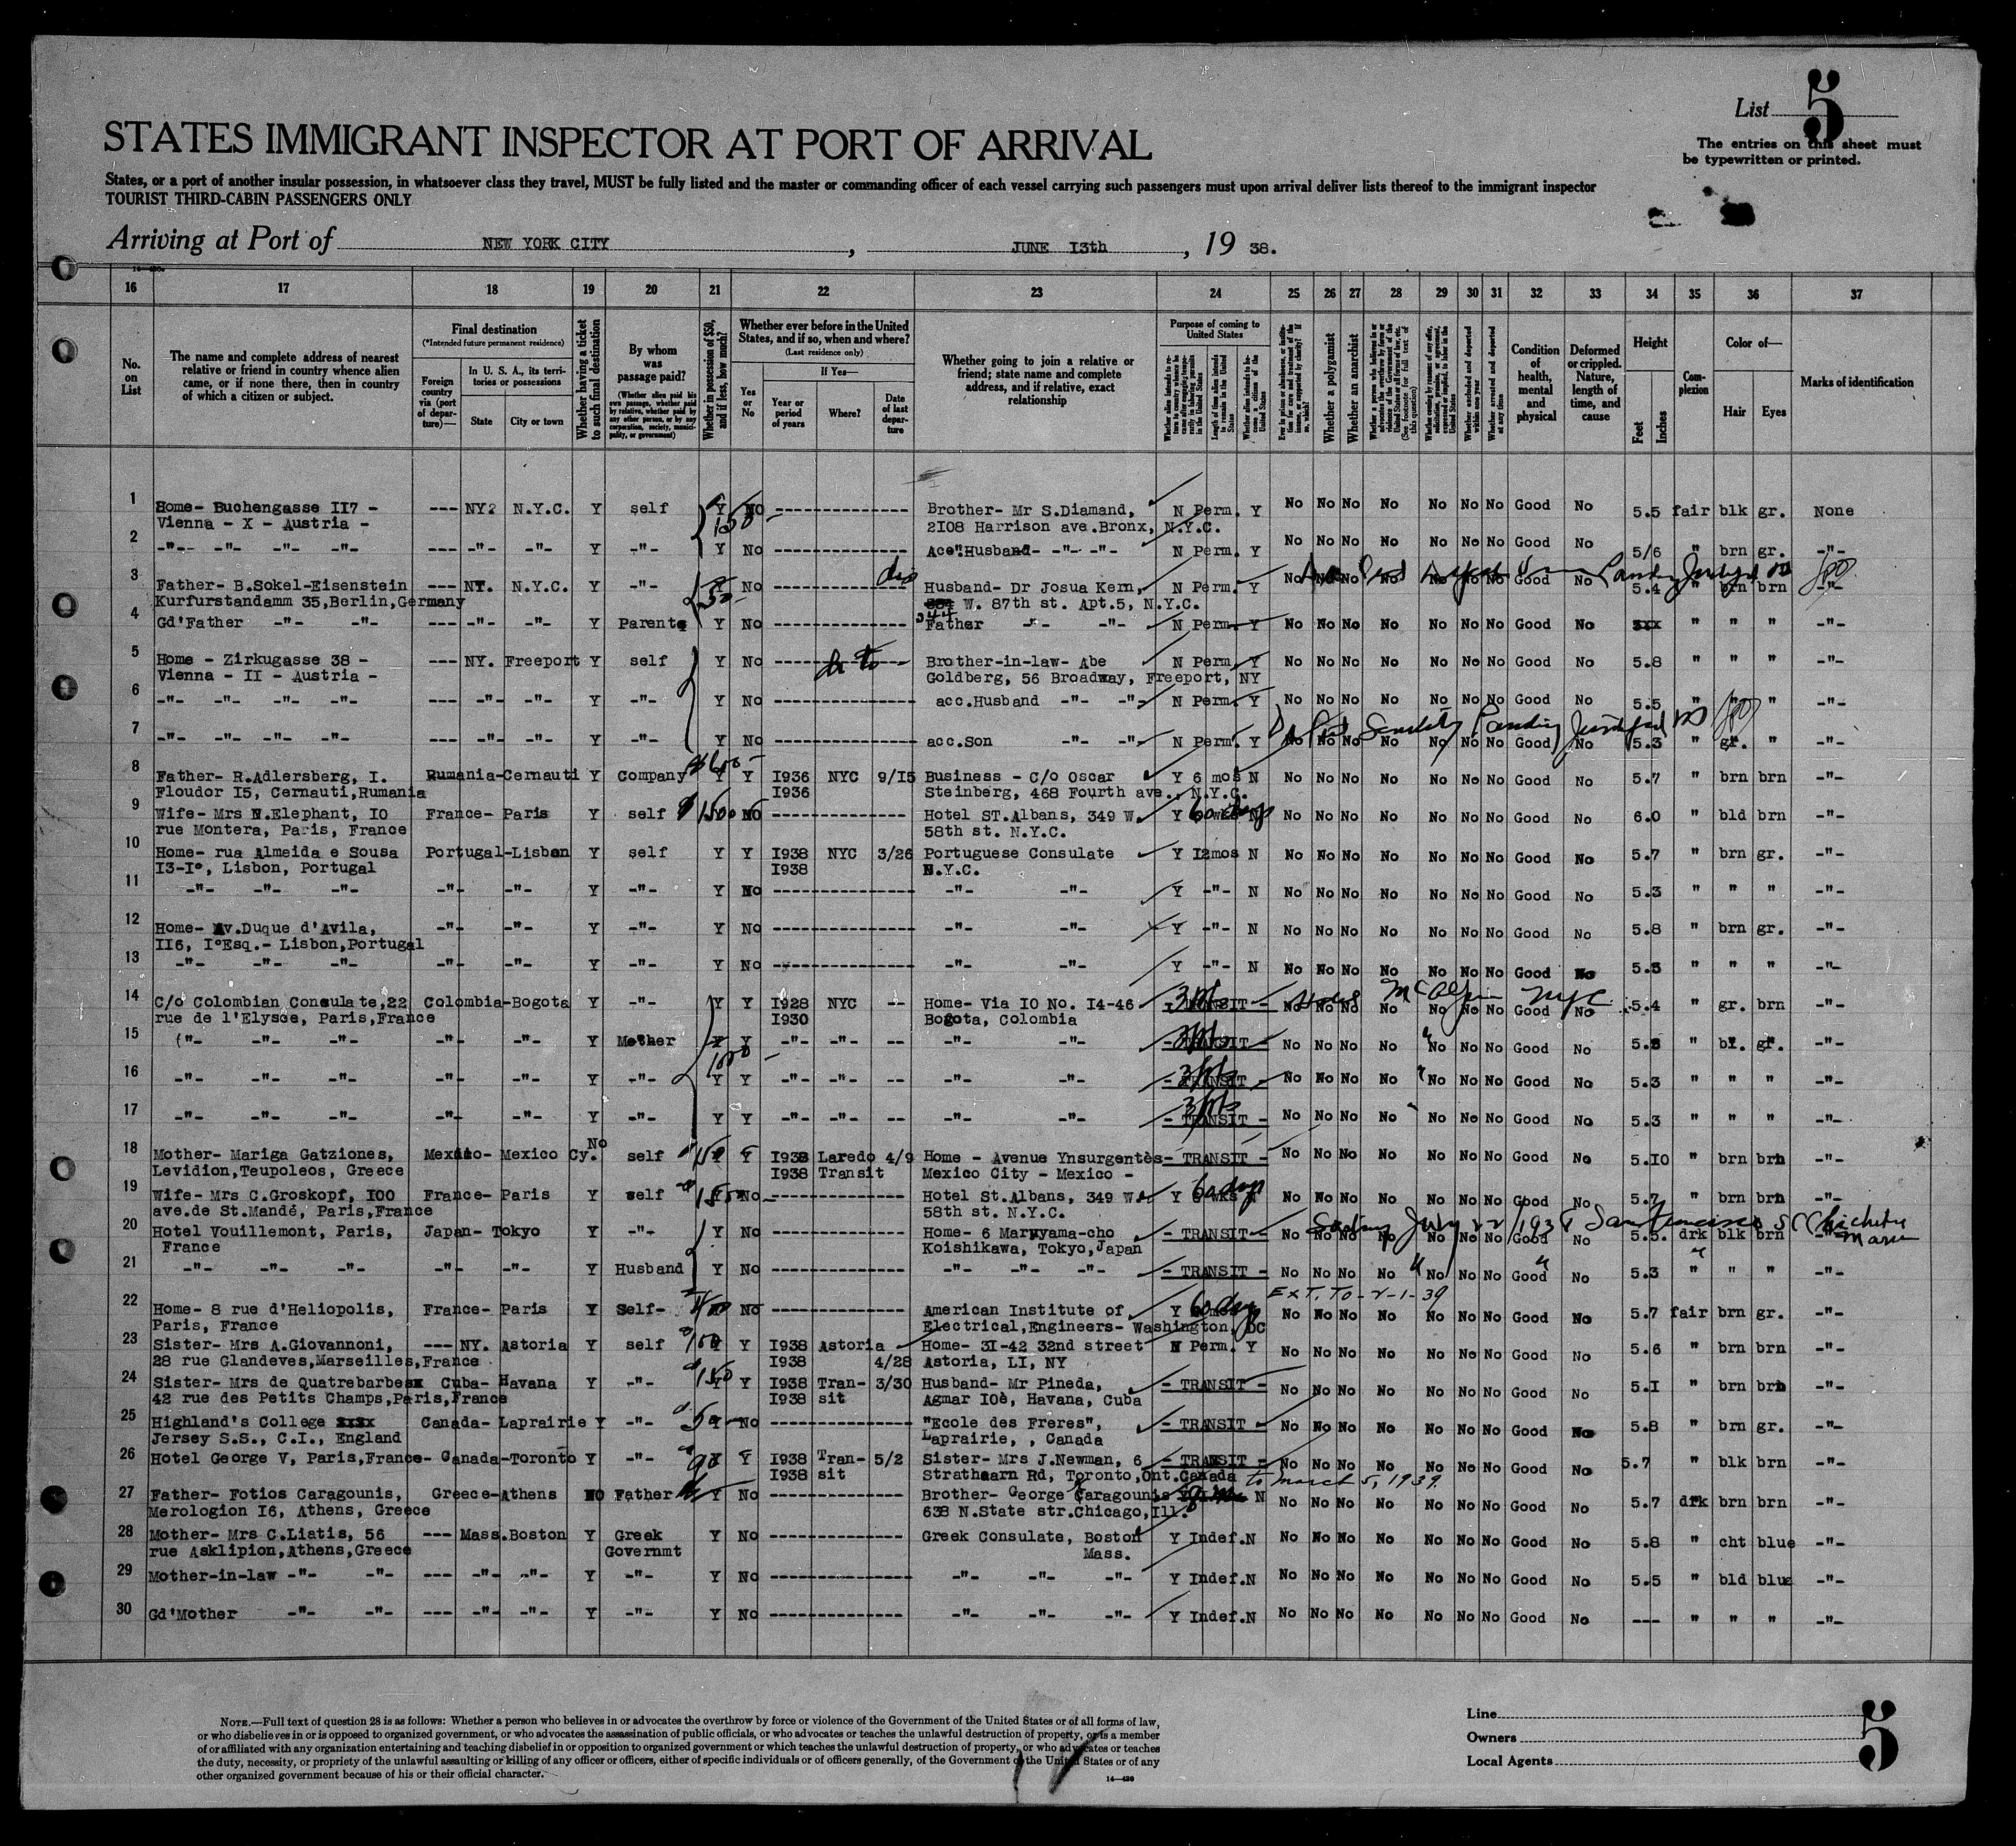 List 5
The entries on this sheet must
be typewritten or printed.
STATES IMMIGRANT INSPECTOR AT PORT OF ARRIVAL
States, or a port of another insular possession, in whatsoever class they travel, MUST be fully listed and the master or commanding officer of each vessel carrying such passengers must upon arrival deliver lists thereof to the immigrant inspector
TOURIST THIRD-CABIN PASSENGERS ONLY
Arriving at Port of NEW YORK CITY, JUNE I3th, 19 38.
16 17 18 19 20 21 22 23 24 25 26 27 28 29 30 31 32 33 34 35 36 37
No. on List
The name and complete address of nearest relative or friend in country whence alien came, or if none there, then in country of which a citizen or subject.
Final destination
(*Intended future permanent residence)
Foreign country via (port of departure)—
In U. S. A., its territories or possessions
State
City or town
Whether having a ticket to such final destination
By whom was passage paid?
(Whether alien paid his own passage, whether paid by relative, whether paid by any other person, or by any corporation, society, municipality, or government)
Whether in possession of $50, and if less, how much?
Whether ever before in the United States, and if so, when and where?
(Last residence only)
Yes or No
If Yes—
Year or period of years
Where?
Date of last departure
Whether going to join a relative or friend; state name and complete address, and if relative, exact relationship
Purpose of coming to United States
Length of time alien intends to remain in the United States
Whether alien intends to become a citizen of the United States
Whether a polygamist
Whether an anarchist
Whether arrested and deported at any time
Condition of health, mental and physical
Deformed or crippled. Nature, length of time, and cause
Height
Feet
Inches
Complexion
Color of—
Hair
Eyes
Marks of identification
1 Home- Buchengasse II7 - --- NY? N.Y.C. Y self Y No -------------- Brother- Mr S.Diamand, N Perm. Y No No No No No No No Good No 5.5 fair blk gr. None
Vienna - X - Austria - 2I08 Harrison ave.Bronx, N.Y.C.
2 -"- -"- -"- -"- --- -"- -"- Y -"- Y No -------------- Acc.Husband- -"- -"- N Perm. Y No No No No No No No Good No 5/6 " brn gr. -"-
3 Father- B.Sokel-Eisenstein --- NY. N.Y.C. Y -"- Y No -------------- Husband- Dr Josua Kern, N Perm. Y No No No No No No No Good No 5.4 " brn brn -"-
Kurfurstandamm 35,Berlin,Germany W. 87th st. Apt.5, N.Y.C.
4 Gd'Father -"- -"- --- -"- -"- Y Parents Y No -------------- Father -"- -"- N Perm. Y No No No No No No No Good No xxx " " " -"-
5 Home - Zirkugasse 38 - --- NY. Freeport Y self Y No -------------- Brother-in-law- Abe N Perm. Y No No No No No No No Good No 5.8 " " " -"-
Vienna - II - Austria - Goldberg, 56 Broadway, Freeport, NY
6 -"- -"- -"- -"- --- -"- -"- Y -"- Y No -------------- acc.Husband -"- -"- N Perm. Y No No No No No No No Good No 5.5 " " " -"-
7 -"- -"- -"- -"- --- -"- -"- Y -"- Y No -------------- acc.Son -"- -"- N Perm. Y No No No No No No No Good No 5.3 " gr. " -"-
8 Father- R.Adlersberg, I. Rumania-Cernauti Y Company $600- Y Y I936 NYC 9/I5 Business - C/o Oscar Y 6 mos N No No No No No No No Good No 5.7 " brn brn -"-
Floudor I5, Cernauti,Rumania I936 Steinberg, 468 Fourth ave., N.Y.C.
9 Wife- Mrs N.Elephant, I0 France- Paris Y self $1500 No -------------- Hotel ST.Albans, 349 W. Y 60 days N No No No No No No No Good No 6.0 " bld brn -"-
rue Montera, Paris, France 58th st. N.Y.C.
10 Home- rua Almeida e Sousa Portugal-Lisbon Y self Y Y I938 NYC 3/26 Portuguese Consulate Y I2mos N No No No No No No No Good No 5.7 " brn gr. -"-
I3-I°, Lisbon, Portugal I938 N.Y.C.
11 -"- -"- -"- -"- -"- Y -"- Y No -------------- -"- -"- Y -"- N No No No No No No No Good No 5.3 " " " -"-
12 Home- Av.Duque d'Avila, -"- -"- Y -"- Y No -------------- -"- -"- Y -"- N No No No No No No No Good No 5.8 " brn gr. -"-
II6, I°Esq.- Lisbon,Portugal
13 -"- -"- -"- -"- -"- Y -"- Y No -------------- -"- -"- Y -"- N No No No No No No No Good No 5.5 " " " -"-
14 C/o Colombian Consulate,22 Colombia-Bogota Y -"- Y Y I928 NYC -- Home- Via I0 No. I4-46 - TRANSIT - Hotel McAlpin NYC No No No No No No No Good No 5.4 " gr. brn -"-
rue de l'Elysee, Paris,France I930 Bogota, Colombia
15 -"- -"- -"- -"- -"- Y Mother Y Y -"- -"- -- -"- -"- - TRANSIT - No No No No No No No Good No " gr. -"-
16 -"- -"- -"- -"- -"- Y -"- Y Y -"- -"- -- -"- -"- - TRANSIT - No No No No No No No Good No 5.3 " " " -"-
17 -"- -"- -"- -"- -"- Y -"- Y Y -"- -"- -- -"- -"- - TRANSIT - No No No No No No No Good No 5.3 " " " -"-
18 Mother- Mariga Gatziones, Mexico- Mexico Cy. No self 150 Y I938 Laredo 4/9 Home - Avenue Ynsurgentès - TRANSIT - No No No No No No No Good No 5.I0 " brn brn -"-
Levidion,Teupoleos, Greece I938 Transit Mexico City - Mexico -
19 Wife- Mrs C.Groskopf, I00 France- Paris Y self No -------------- Hotel St.Albans, 349 W. Y 60 days N No No No No No No No Good No 5.7 " brn brn -"-
ave.de St.Mandé, Paris,France 58th st. N.Y.C.
20 Hotel Vouillemont, Paris, Japan- Tokyo Y -"- Y No -------------- Home- 6 Maruyama-cho - TRANSIT - Sailing July 22/1938 San Francisco SS Chichibu Maru No No No No No No No Good No 5.5. drk blk brn -"-
France Koishikawa, Tokyo,Japan
21 -"- -"- -"- -"- -"- Y Husband Y No -------------- -"- -"- -"- - TRANSIT - No No No No No No No Good No 5.3 " " " -"-
EXT. TO - 2-1-39
22 Home- 8 rue d'Heliopolis, France- Paris Y Self- No -------------- American Institute of Y 60 days No No No No No No No Good No 5.7 fair brn gr. -"-
Paris, France Electrical,Engineers- Washington, DC
23 Sister- Mrs A.Giovannoni, --- NY. Astoria Y self 100 Y I938 Astoria Home- 3I-42 32nd street N Perm. Y No No No No No No No Good No 5.6 " brn brn -"-
28 rue Glandeves,Marseilles,France I938 4/28 Astoria, LI, NY
24 Sister- Mrs de Quatrebarbes Cuba- Havana Y -"- 150 Y I938 Tran- 3/30 Husband- Mr Pineda, - TRANSIT - No No No No No No No Good No 5.I " brn brn -"-
42 rue des Petits Champs,Paris,France I938 sit Agmar I0è, Havana, Cuba
25 Highland's College xxxx Canada- Laprairie Y -"- 50 No -------------- "Ecole des Frères", - TRANSIT - No No No No No No No Good No 5.8 " brn gr. -"-
Jersey S.S., C.I., England Laprairie, , Canada
26 Hotel George V, Paris,France- Canada-Toronto Y -"- 90 Y I938 Tran- 5/2 Sister- Mrs J.Newman, 6 - TRANSIT - No No No No No No No Good No 5.7 " blk brn -"-
I938 sit Strathearn Rd, Toronto,Ont.Canada to March 5, 1939
27 Father- Fotios Caragounis, Greece-Athens NO Father Y No -------------- Brother- George Caragounis N No No No No No No No Good No 5.7 drk brn brn -"-
Merologion I6, Athens, Greece 638 N.State str.Chicago,Ill.
28 Mother- Mrs C.Liatis, 56 --- Mass.Boston Y Greek Y No -------------- Greek Consulate, Boston Y Indef.N No No No No No No No Good No 5.8 " cht blue -"-
rue Asklipion,Athens,Greece Governmt Mass.
29 Mother-in-law -"- -"- --- -"- -"- Y -"- Y No -------------- -"- -"- -"- Y Indef.N No No No No No No No Good No 5.5 " bld blue -"-
30 Gd'Mother -"- -"- --- -"- -"- Y -"- Y No -------------- -"- -"- -"- Y Indef.N No No No No No No No Good No --- " " " -"-
NOTE.—Full text of question 28 is as follows: Whether a person who believes in or advocates the overthrow by force or violence of the Government of the United States or of all forms of law,
or who disbelieves in or is opposed to organized government, or who advocates the assassination of public officials, or who advocates or teaches the unlawful destruction of property, or is a member
of or affiliated with any organization entertaining and teaching disbelief in or opposition to organized government or which teaches the unlawful destruction of property, or who advocates or teaches
the duty, necessity, or propriety of the unlawful assaulting or killing of any officer or officers, either of specific individuals or of officers generally, of the Government of the United States or of any
other organized government because of his or their official character.
14—420
Line
Owners
Local Agents
5